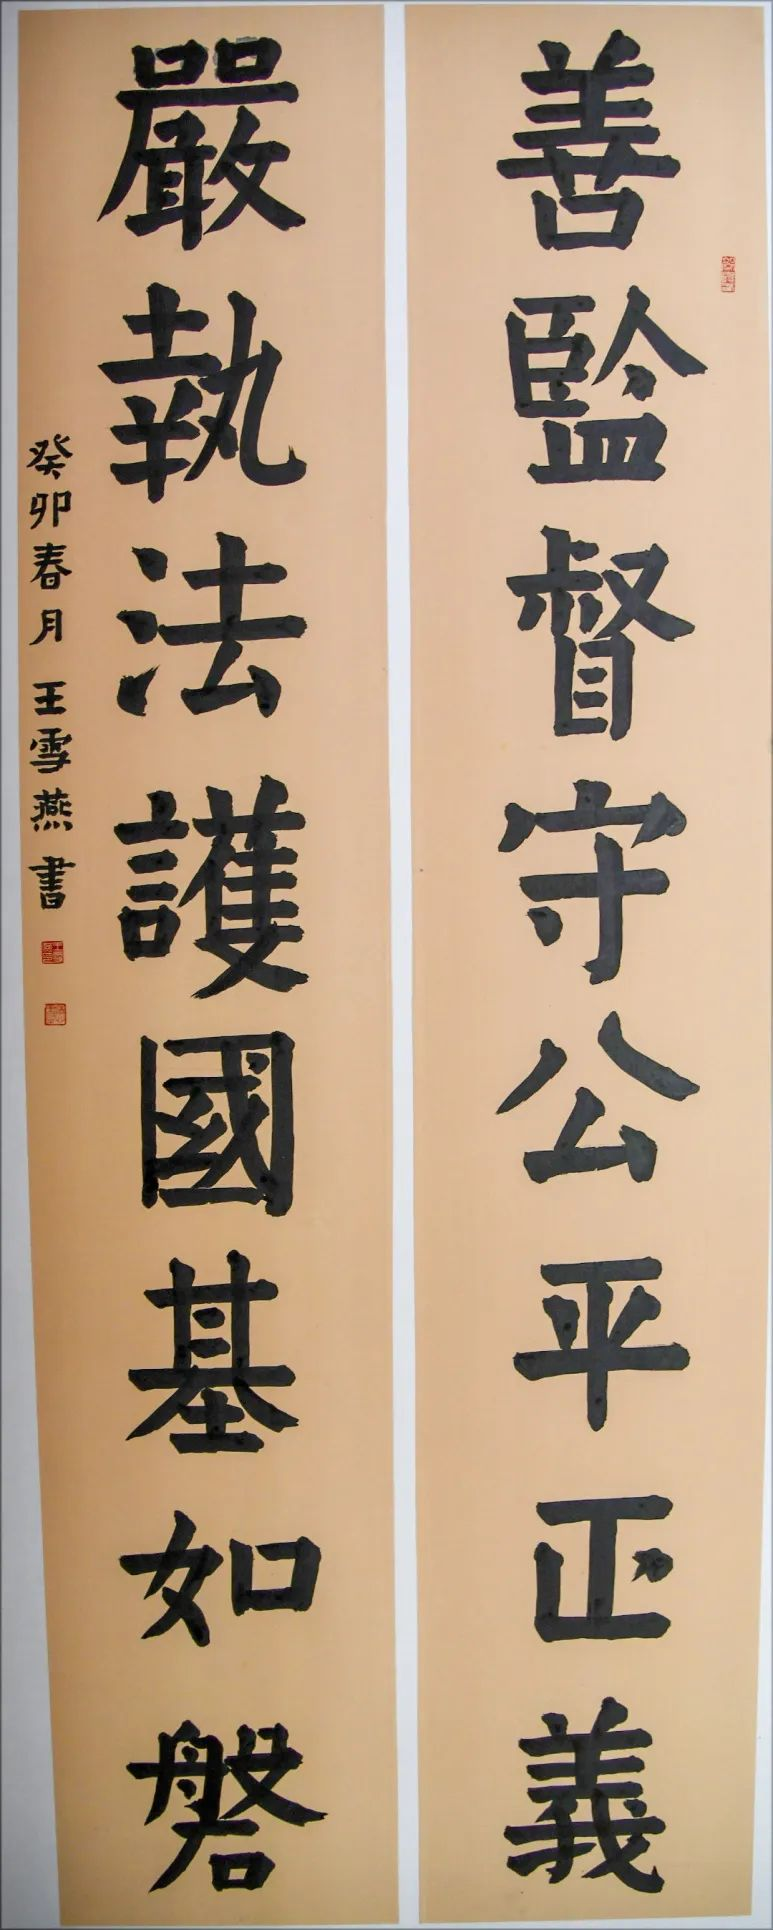 善監督守公平正義
嚴執法護國基如磐
癸卯春月王雪燕書